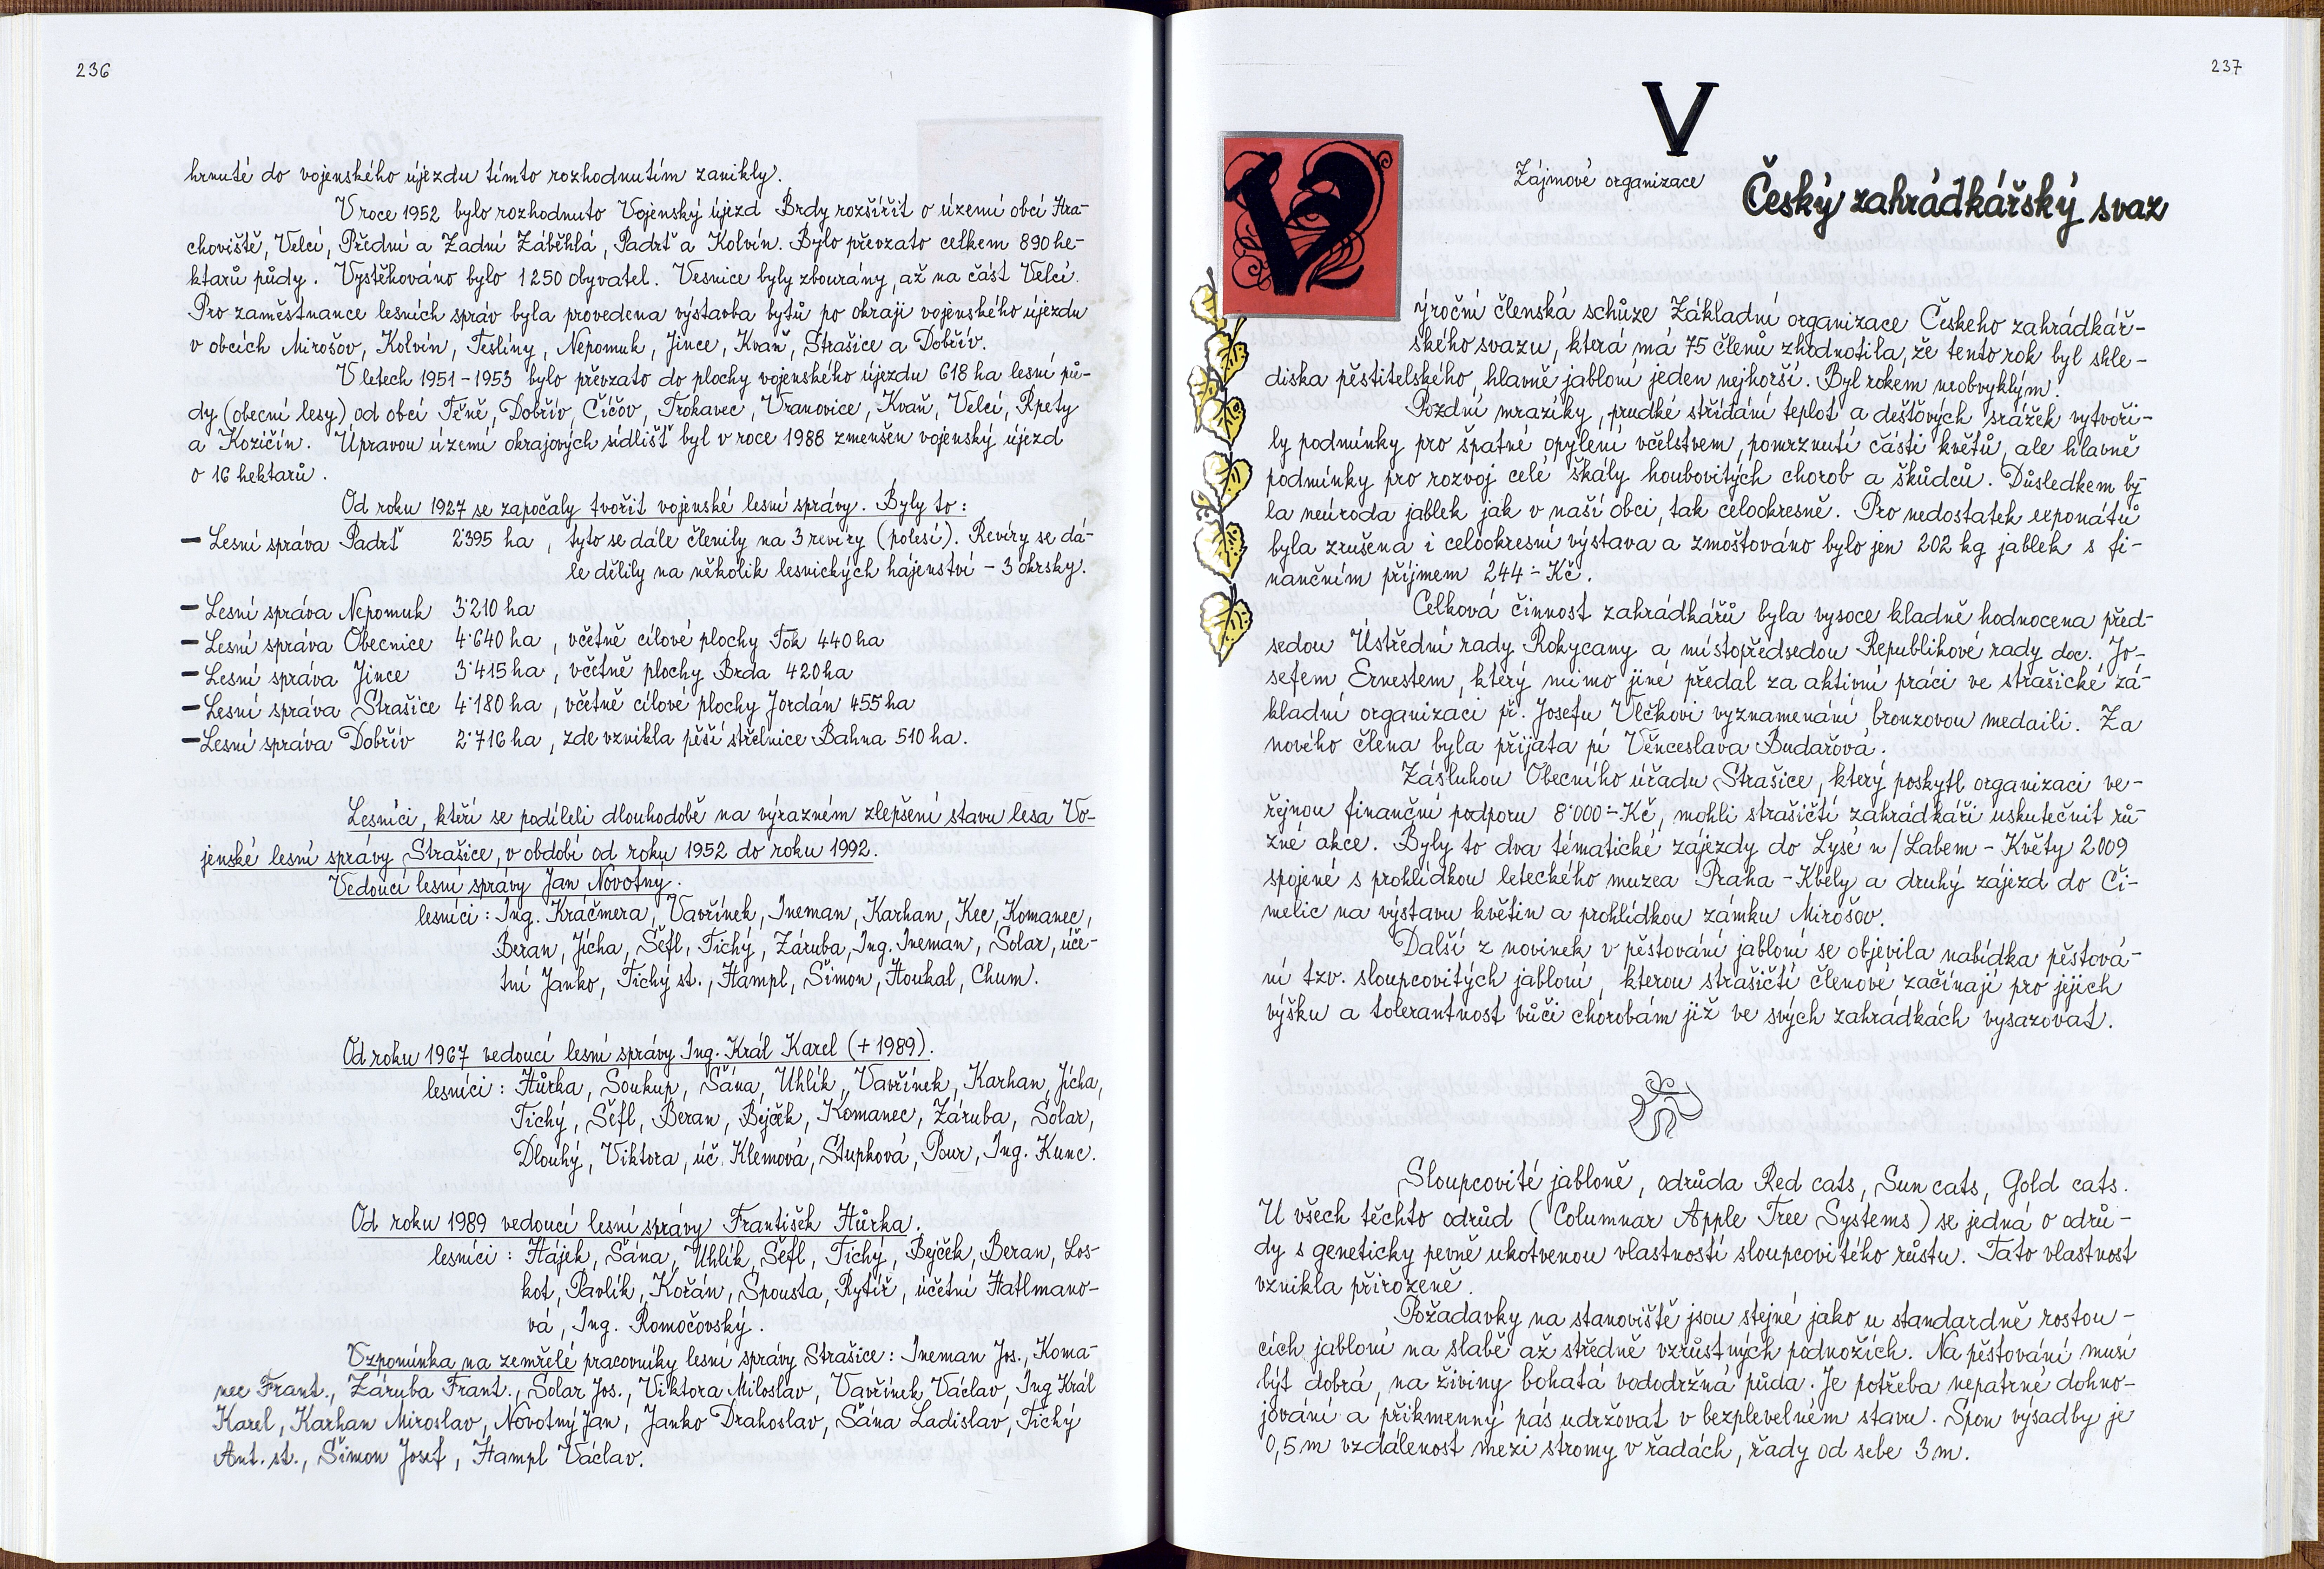 236
hrnuté do vojenského újezdu tímto rozhodnutím zanikly.
V roce 1952 bylo rozhodnuto Vojenský újezd Brdy rozšířit o území obcí Hra-
choviště, Velcí, Přední a Zadní Záběhlá, Padrť a Kolvín. Bylo převzato celkem 890 he-
ktarů půdy. Vystěhováno bylo 1250 obyvatel. Vesnice byly zbourány, až na část Velcí.
Pro zaměstnance lesních správ byla provedena výstavba bytů po okraji vojenského újezdu
v obcích Mirošov, Kolvín, Teslíny, Nepomuk, Jince, Kvaň, Strašice a Dobřív.
V letech 1951-1953 bylo převzato do plochy vojenského újezdu 618 ha lesní pů-
dy (obecní lesy) od obcí Těně, Dobřív, Číčov, Trokavec, Vranovice, Kvaň, Velcí, Rpety
a Kozičín. Úpravou území okrajových sídlišť byl v roce 1988 zmenšen vojenský újezd
o 16 hektarů.
Od roku 1927 se započaly tvořit vojenské lesní správy. Byly to:
- Lesní správa Padrť 2˙395 ha, tyto se dále členily na 3 revíry (polesí). Revíry se dá-
le dělily na několik lesnických hájenství - 3 okrsky.
- Lesní správa Nepomuk 3˙210 ha
- Lesní správa Obecnice 4˙640 ha, včetně cílové plochy Tok 440 ha
- Lesní správa Jince 3˙415 ha, včetně plochy Brda 420 ha
- Lesní správa Strašice 4˙180 ha, včetně cílové plochy Jordán 455 ha
- Lesní správa Dobřív 2˙716 ha, zde vznikla pěší střelnice Bahna 510 ha.
Lesníci, kteří se podíleli dlouhodobě na výrazném zlepšení stavu lesa Vo-
jenské lesní správy Strašice, v období od roku 1952 do roku 1992.
Vedoucí lesní správy Jan Novotný.
lesníci: Ing. Kráčmera, Vavřínek, Ineman, Karhan, Kec, Komanec,
Beran, Jícha, Šéfl, Tichý, Záruba, Ing. Ineman, Šolar, úče-
tní Janko, Tichý st., Hampl, Šimon, Houkal, Chum.
Od roku 1967 vedoucí lesní správy Ing. Král Karel (+1989).
lesníci: Hůrka, Soukup, Šána, Uhlík, Vavřínek, Karhan, Jícha,
Tichý, Šéfl, Beran, Bejček, Komanec, Záruba, Šolar,
Dlouhý, Viktora, úč. Klemová, Stupková, Pour, Ing. Kunc.
Od roku 1989 vedoucí lesní správy František Hůrka.
lesníci: Hájek, Šána, Uhlík, Šéfl, Tichý, Bejček, Beran, Los-
kot, Pavlík, Kořán, Spousta, Rytíř, účetní Hatlmano-
vá, Ing. Romočovský.
Vzpomínka na zemřelé pracovníky lesní správy Strašice: Ineman Jos., Koma-
nec Frant., Záruba Frant., Šolar Jos., Viktora Miloslav, Vavřínek Václav, Ing Král
Karel, Karhan Miroslav, Novotný Jan, Janko Drahoslav, Šána Ladislav, Tichý
Ant. st., Šimon Josef, Hampl Václav.
237
V
Zájmové organizace
Český zahrádkářský svaz
Výroční členská schůze Základní organizace Českeho zahrádkář-
ského svazu, která má 75 členů zhodnotila, že tento rok byl shle-
diska pěstitelského, hlavně jabloní jeden nejhorší. Byl rokem neobvyklým.
Pozdní mrazíky, prudké střídání teplot a dešťových srážek vytvoři-
ly podmínky pro špatné opylení včelstvem, pomrznutí části květů, ale hlavně
podmínky pro rozvoj celé škály houbovitých chorob a škůdců. Důsledkem by-
la neúroda jablek jak v naší obci, tak celookresně. Pro nedostatek exponátů
byla zrušena i celookresní výstava a zmoštováno bylo jen 202 kg jablek s fi-
nančním příjmem 244.- Kč.
Celková činnost zahrádkářů byla vysoce kladně hodnocena před-
sedou Ústřední rady Rokycany a místopředsedou Republikové rady doc. Jo-
sefem Ernestem, který mimo jiné předal za aktivní práci ve strašické zá-
kladní organizaci př. Josefu Vlčkovi vyznamenání bronzovou medaili. Za
nového člena byla přijata pí Věnceslava Budařová.
Zásluhou Obecního úřadu Strašice, který poskytl organizaci ve-
řejnou finanční podporu 8˙000.- Kč, mohli strašičtí zahrádkáři uskutečnit rů-
zné akce. Byly to dva tématické zájezdy do Lysé n/Labem - Květy 2009
spojené s prohlídkou leteckého muzea Praha - Kbely a druhý zájezd do Či-
melic na výstavu květin a prohlídkou zámku Mirošov.
Další z novinek v pěstování jabloní se objevila nabídka pěstová-
ní tzv. sloupcovitých jabloní, kterou strašičtí členové začínají pro jejich
výšku a tolerantnost vůči chorobám již ve svých zahrádkách vysazovat.
Sloupcovité jabloně, odrůda Red cats, Sun cats, Gold cats.
U všech těchto odrůd (Columnar Apple Tree Systems) se jedná o odrů-
dy s geneticky pevně ukotvenou vlastností sloupcovitého růstu. Tato vlastnost
vznikla přirozeně.
Požadavky na stanoviště jsou stejné jako u standardně rostou-
cích jabloní na slabě až středně vzrůstných podnožích. Na pěstování musí
být dobrá, na živiny bohatá vododržná půda. Je potřeba nepatrné dohno-
jování a příkmenný pás udržovat v bezplevelném stavu. Spon výsadby je
0,5 m vzdálenost mezi stromy v řadách, řady od sebe 3 m.